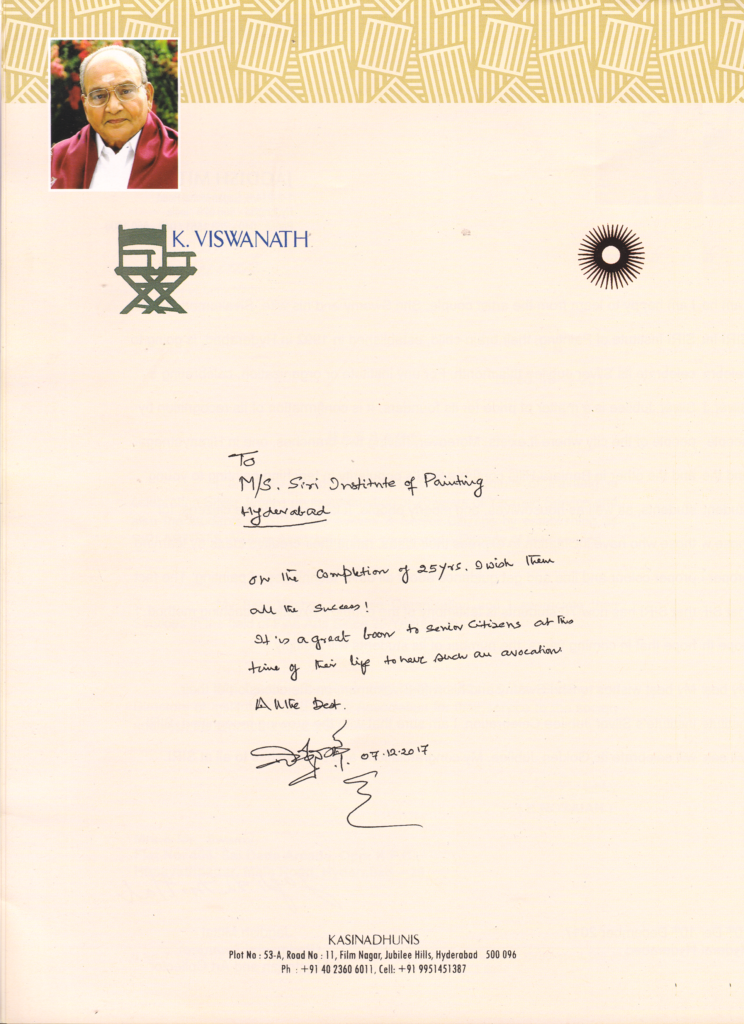 K. VISWANATH
To
M/S. Siri Institute of Painting
Hyderabad
on the completion of 25 yrs. I wish them
all the success!
It is a great boon to senior citizens at this
time of their life to have such an avocation
All the Best.
07.12.2017
KASINADHUNIS
Plot No : 53-A, Road No : 11, Film Nagar, Jubilee Hills, Hyderabad 500 096
Ph : +91 40 2360 6011, Cell: +91 9951451387